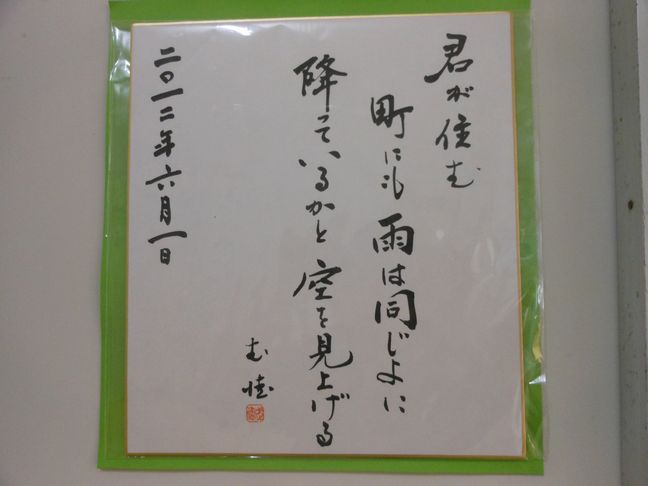 君が住む
町にも雨は同じよに
降っているかと空を見上げる
む
二〇一二年六月一日